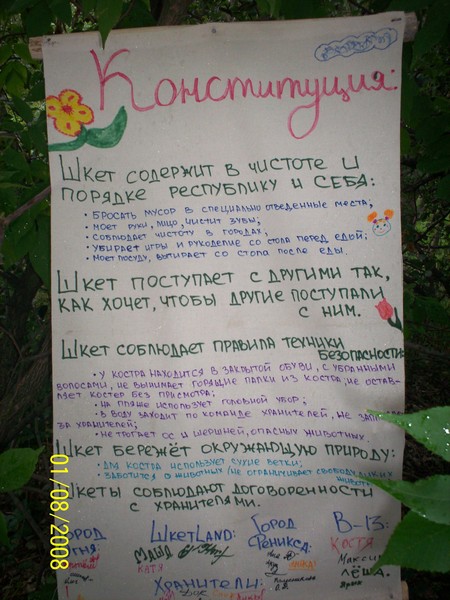 Конституция:
Шкет содержит в чистоте и
порядке республику и себя:
• Бросать мусор в специально отведенные места;
• Моет руки, лицо, чистит зубы;
• Соблюдает чистоту в городах;
• Убирает игры и рукоделие со стола перед едой;
• Моет посуду, вытирает со стола после еды.
Шкет поступает с другими так,
как хочет, чтобы другие поступали
с ним.
Шкет соблюдает правила техники
безопасности:
• У костра находится в закрытой обуви, с убранными
волосами, не вынимает горящие палки из костра, не остав-
ляет костер без присмотра;
• На пляже использует головной убор;
• В воду заходит по команде хранителей, не
за хранителей;
• Не трогает ос и шершней, опасных животных.
Шкет бережёт окружающую природу:
• Для костра использует сухие ветки;
• Заботится о животных (не ограничивает свободу диких
животных
Шкеты соблюдают договоренности
с хранителями.
ОРОД ШкетLand: Город В-13:
ГНЯ: Маша Феникса: Катя
Катя Максим
Лёша.
Хранители:
01/08/2008